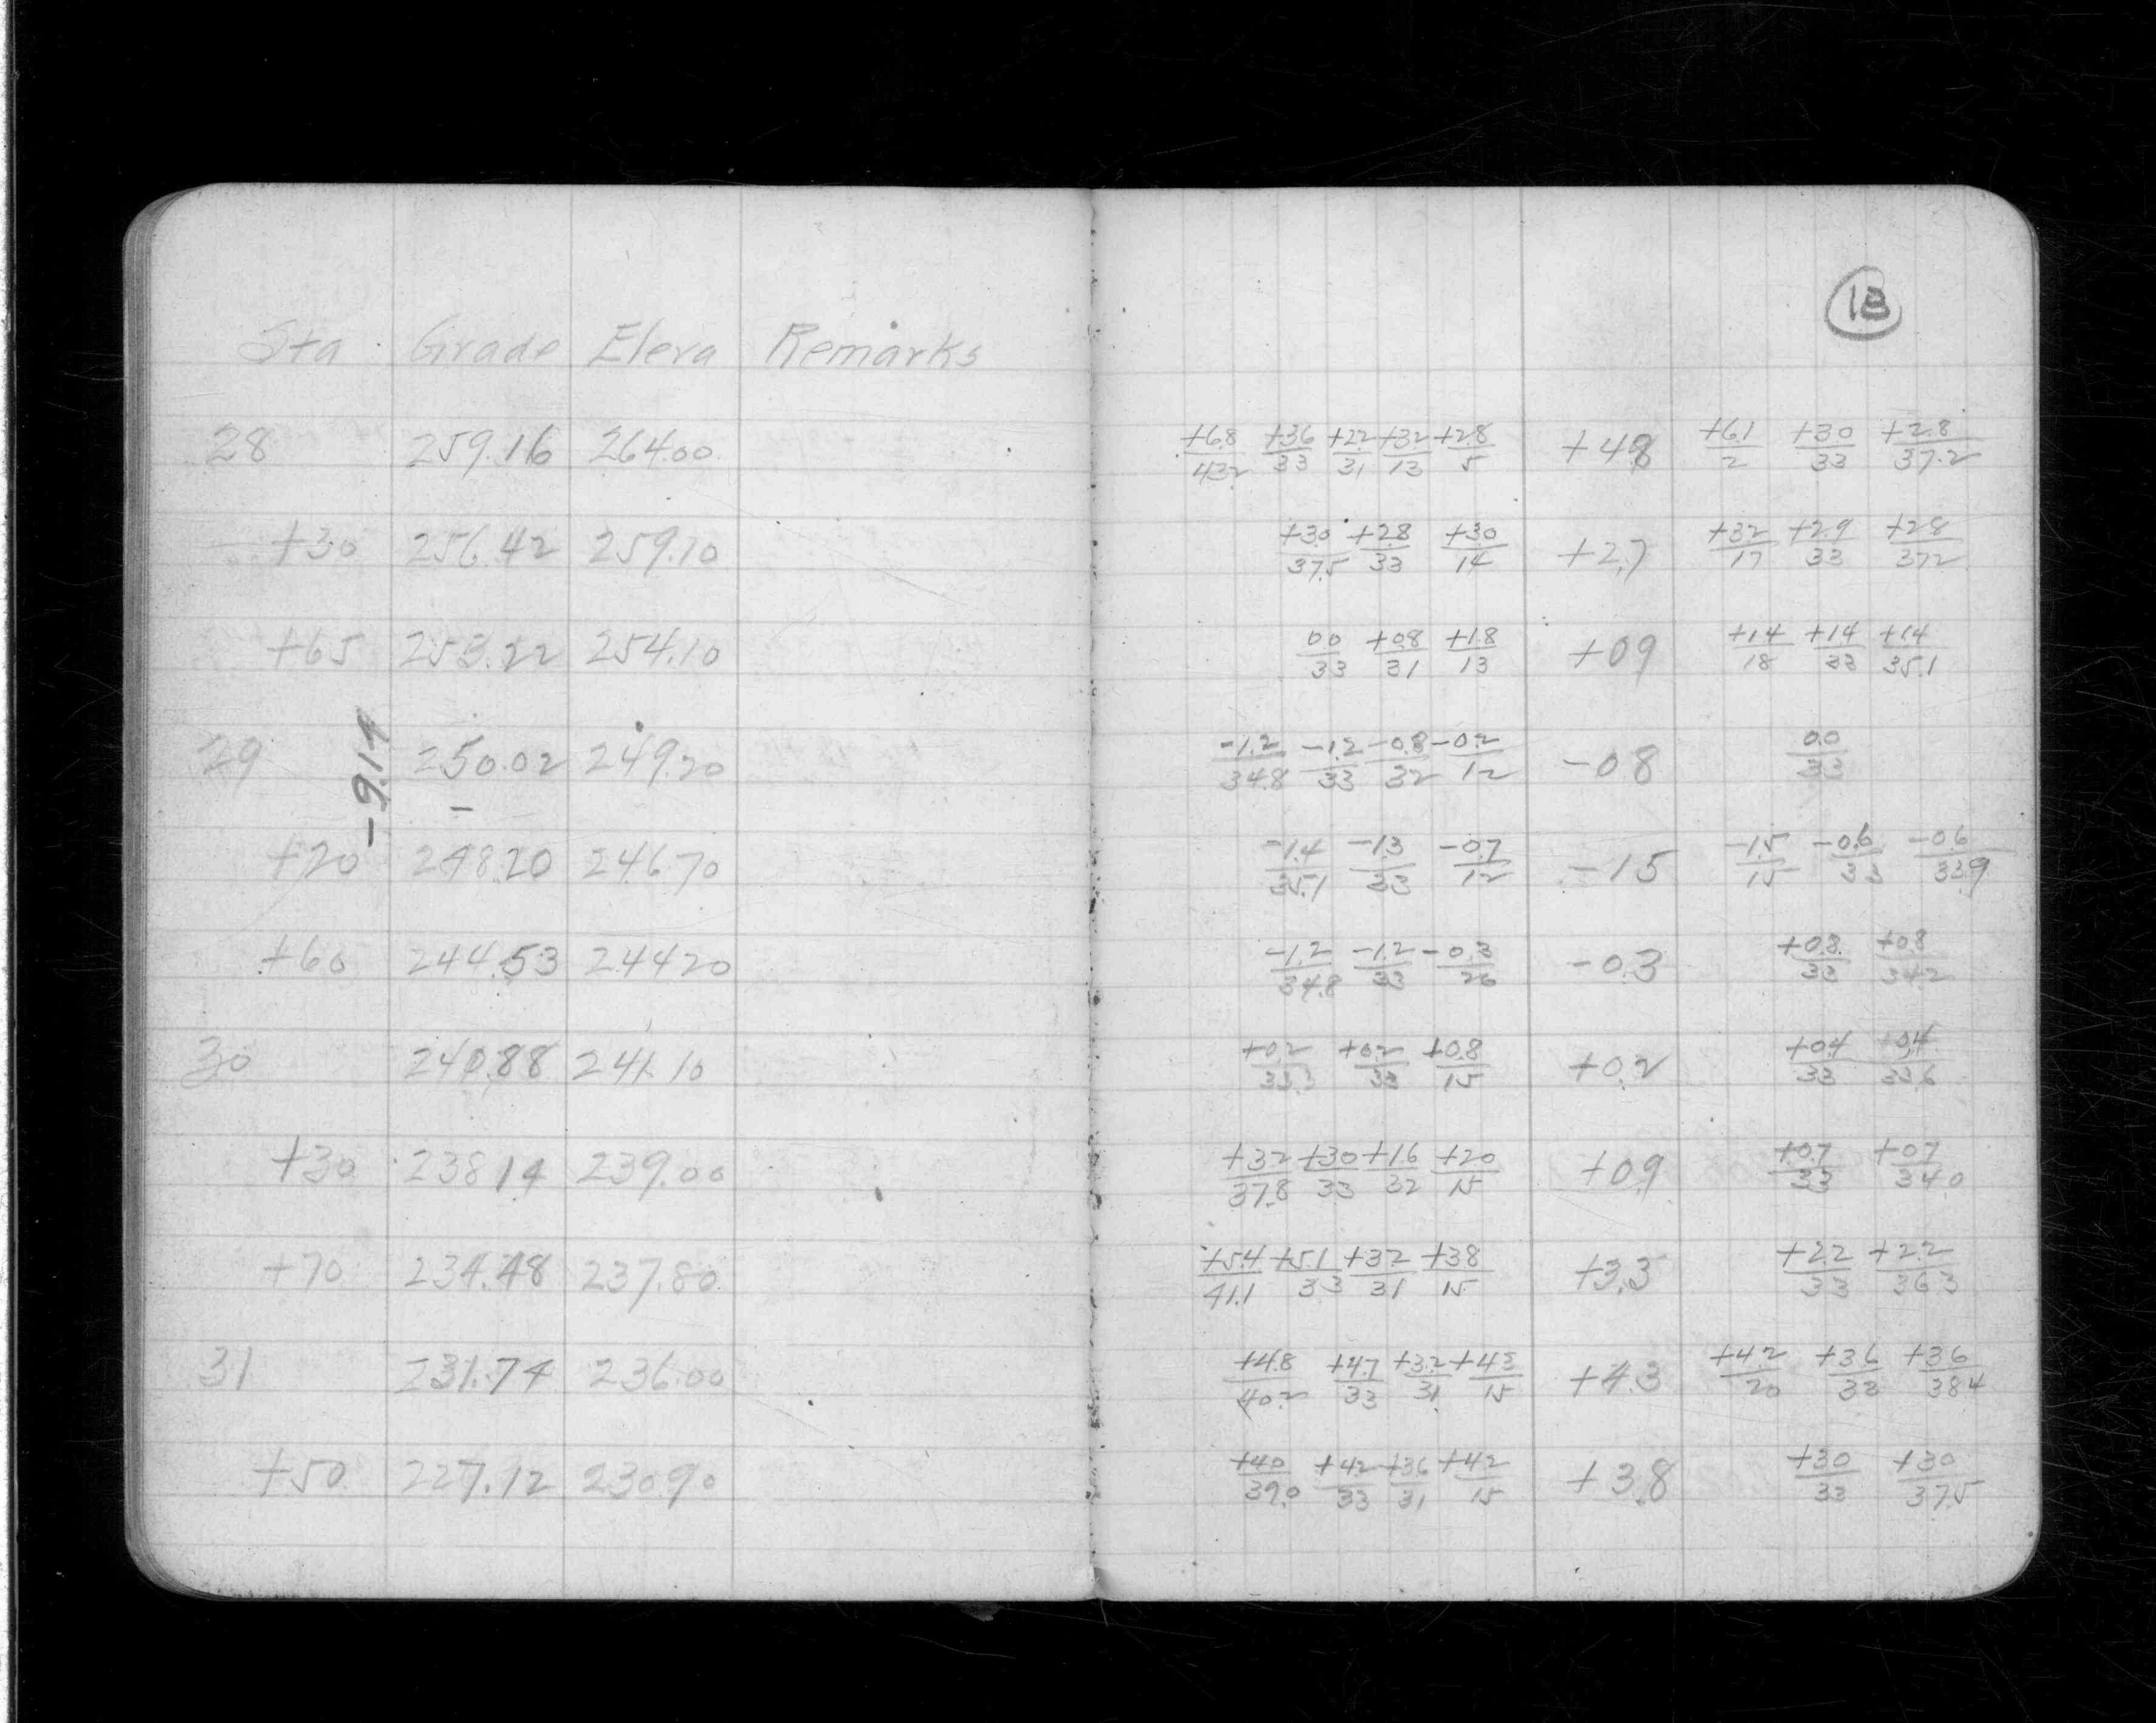 1B
Sta Grade Eleva Remarks
28 259.16 264.00 +6.8/43.2 +3.6/33 +2.2/31 +3.2/13 +2.8/5 +4.8 +6.1/2 +3.0/33 +2.8/37.2
+30 256.42 259.10 +3.0/37.5 +2.8/33 +3.0/14 +2.7 +3.2/17 +2.9/33 +2.8/37.2
+65 253.22 254.10 0.0/33 +0.8/31 +1.8/13 +0.9 +1.4/18 +1.4/33 +1.4/35.1
29 250.02 249.20 -1.2/34.8 -1.2/33 -0.8/32 -0.2/12 -0.8 0.0/33
-9.14
+20 248.20 246.70 -1.4/35.1 -1.3/33 -0.7/12 -1.5 -1.5/15 -0.6/33 -0.6/33.9
+60 244.53 244.20 -1.2/34.8 -1.2/33 -0.3/26 -0.3 +0.8/33 +0.8/34.2
30 240.88 241.10 +0.2/33.3 +0.2/33 +0.8/15 +0.2 +0.4/33 +0.4/33.6
+30 238.14 239.00 +3.2/37.8 +3.0/33 +1.6/32 +2.0/15 +0.9 +0.7/33 +0.7/34.0
+70 234.48 237.80 +5.4/41.1 +5.1/33 +3.2/31 +3.8/15 +3.3 +2.2/33 +2.2/36.3
31 231.74 236.00 +4.8/40.2 +4.7/33 +3.2/31 +4.3/15 +4.3 +4.2/20 +3.6/33 +3.6/38.4
+50 227.12 230.90 +4.0/39.0 +4.2/33 +3.6/31 +4.2/15 +3.8 +3.0/33 +3.0/37.5